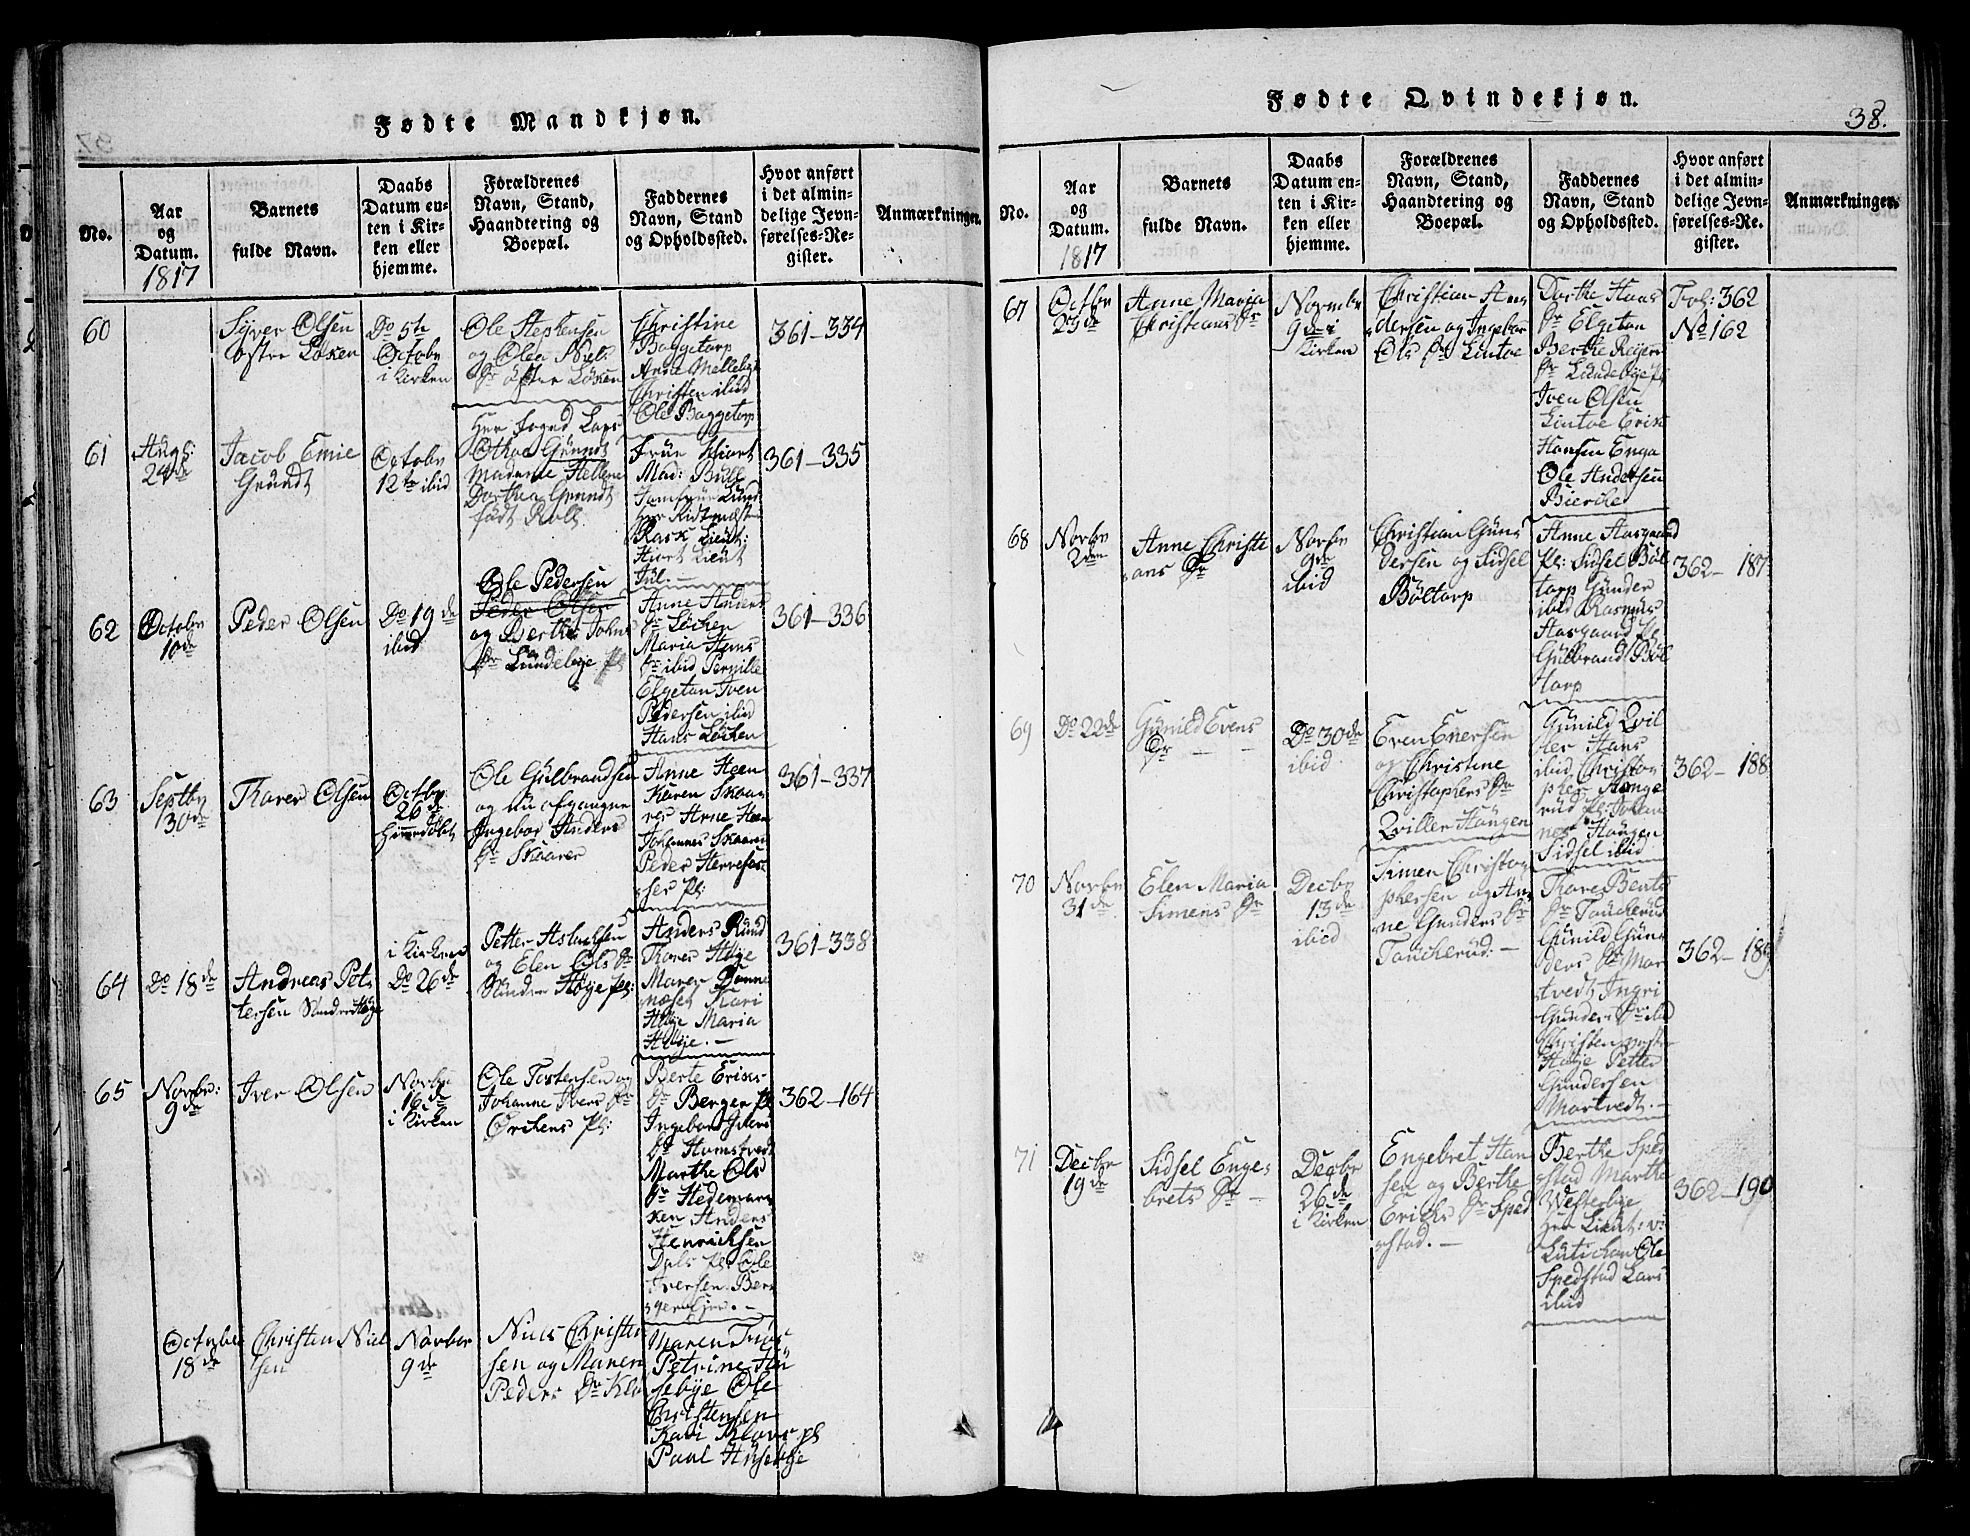 Fødte Mandkjøn.
No.
Aar
og
Datum.
1817
Barnets
fulde Navn.
Daabs
Datum en-
ten i Kir-
ken eller
hjemme.
Forældrenes
Navn, Stand,
Haandtering og
Boepæl.
Faddernes
Navn, Stand
og Opholdssted.
Hvor anført
i det almin-
delige Jevn-
førelses-Re-
gister.
Anmærkninger.
60
Syver Olsen
østre Løken
Do 5te
Octobr
i Kirken
Ole Stephensen
og Olea Niels
Dr østre Løken
Christine
Baggetorp
Anne Melleby
Christen ibid
Ole Baggetorp
361-334
61
Augs:
24de
Jacob Emie
Grundt
Octobr
12te ibid
Her Fogd Lars
Othoe Grundt
Madame Hellene
Dorthea Grundt
født Roll
Frue Hiort
Mad: Bull
Jomfrue Lund
Herr Ridtmæster
Rask Lieut:
Hiort Lieut
Jul.
361-335
62
Octobr
10de
Peder Olsen
Do 19de
ibid
Ole Pedersen
Peder Olsen
og Berthe Johns
Dr Lundebye pl
Anne Anders
Dr Løcken
Maria Hans
Dr ibid Pernille
Elgetun Iven
Pedersen ibid
Hans Løcken
361-336
63
Septbr
30de
Thorer Olsen
Octobr
26de
hiemdøbt
Ole Gulbrandsen
og nu afgangne
Ingebor Anders
Dr Skaarer
Anne Heen
Karen Skaa
res Arne Heen
Johannes Skaarer
Peder Herrefos
ser pl:
361-337
64
Do 18de
Andreas Pet
tersen Søndre Høye
i Kirken
Do 26de
Petter Aslachsen
og Elen Ols Dr
Søndre Høye pl:
Anders Rud
Thorer Høye
Maren Donne
næset Kari
Høye Maria
Høye.
361-338
65
Novbr:
9de
Iver Olsen
Novbr
16de
i Kirken
Ole Tostensen og
Johanne Ivers Dr
Ørckens pl:
Berte Erics
Dr Berger pl
Ingebor Ivers
Dr Homstvedt
Marthe Ols
Dr Hedemar
ken Anders
Henrichsen
Dals pl: Ole
Iversen Ber
ger
362-164
Octobr
18de
Christen Niel
sen
Novbr
9de
Niels Christen
sen og Maren
Peders Dr Klo
Maren Trøs
Petrine Hu
sebye Ole
Christensen
Kari Kloes pl
Paul Husebye
Fødte Qvindekjøn.
38.
No.
Aar
og
Datum.
1817
Barnets
fulde Navn.
Daabs
Datum en-
ten i Kir-
ken eller
hjemme.
Forældrenes
Navn, Stand,
Haandtering og
Boepæl.
Faddernes
Navn, Stand
og Opholdssted.
Hvor anført
i det almin-
delige Jevn-
førelses-Re-
gister.
Anmærkninger.
67
Octbr
23de
Anne Maria
Christians Dr
Novmbr
9de i
Kirken
Christian An
dersen og Ingebor
Ols Dr Lintoe
Dorthe Hans
Dr Elgetun
Berthe Reiers
Dr Lundebye pl
Iven Olsen
Lintoe Erik
Hansen Enga
Ole Andersen
Biercke
Fol: 362
No 162
68
Novbr
2den
Anne Christi
ans Dr
Novbr
9de
ibid
Christian Gun
dersen og Sidsel
Böltorp
Anne Aasgaard
pl: Sidsel Böl
torp Gunder
ibid Rasmus
Aasgaard pl
Gulbrand Böl
torp
362-187
69
Do 22de
Gunild Evens
Dr
Do 30de
ibid
Even Enersen
og Christine
Christophers Dr
Qviller Haugen
Gunild Qvil
ler Hans
ibid Christo
pher Hange
rud pl: Johan
nes Haugen
Sidsel ibid
362-188
70
Novbr
31de
Elen Maria
Simens Dr
Decbr
13de
ibid
Simen Christo
phersen og An
ne Gunders Dr
Tanckerud.
Thore Bents
Dr Tanckerud
Gunild Gun
ders Dr Mor
tvedt Ingri
Gunders Dr ibid
Christen
Høye Petter
Gundersen
Mortvedt.
362-189
71
Decbr
19de
Sidsel Enge
brets Dr
Decbr
26de
i Kirken
Engebret Han
sen og Berthe
Erichs Dr Sped
stad.
Berthe Sped
stad Marthe
Westerbye
Herr Lieut: v:
Lutichau Ole
Spedstad Lars
ibid
362-190